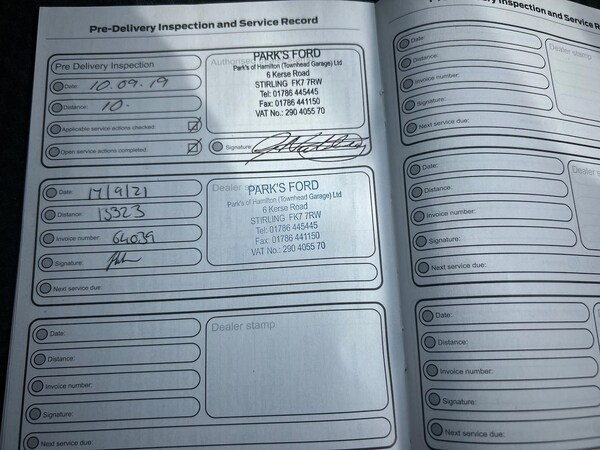 Pre-Delivery Inspection and Service Record
Pre Delivery Inspection
Date: 10.09.19
Distance: 10.
Applicable service actions checked:
Open service actions completed:
Authorised
PARK'S FORD
Park's of Hamilton (Townhead Garage) Ltd
6 Kerse Road
STIRLING FK7 7RW
Tel: 01786 445445
Fax: 01786 441150
VAT No.: 290 4055 70
Signature:
Date: 17/9/21
Distance: 15323
Invoice number: 64039
Signature:
Next service due:
Dealer
PARK'S FORD
Park's of Hamilton (Townhead Garage) Ltd
6 Kerse Road
STIRLING FK7 7RW
Tel: 01786 445445
Fax: 01786 441150
VAT No.: 290 4055 70
Date:
Distance:
Invoice number:
Signature:
Next service due:
Dealer stamp
Inspection and Service R
Date:
Distance:
Invoice number:
Signature:
Next service due:
Dealer stamp
Date:
Distance:
Invoice number:
Signature:
Next service due:
Dealer s
Date:
Distance:
Invoice number:
Signature:
Next service due: